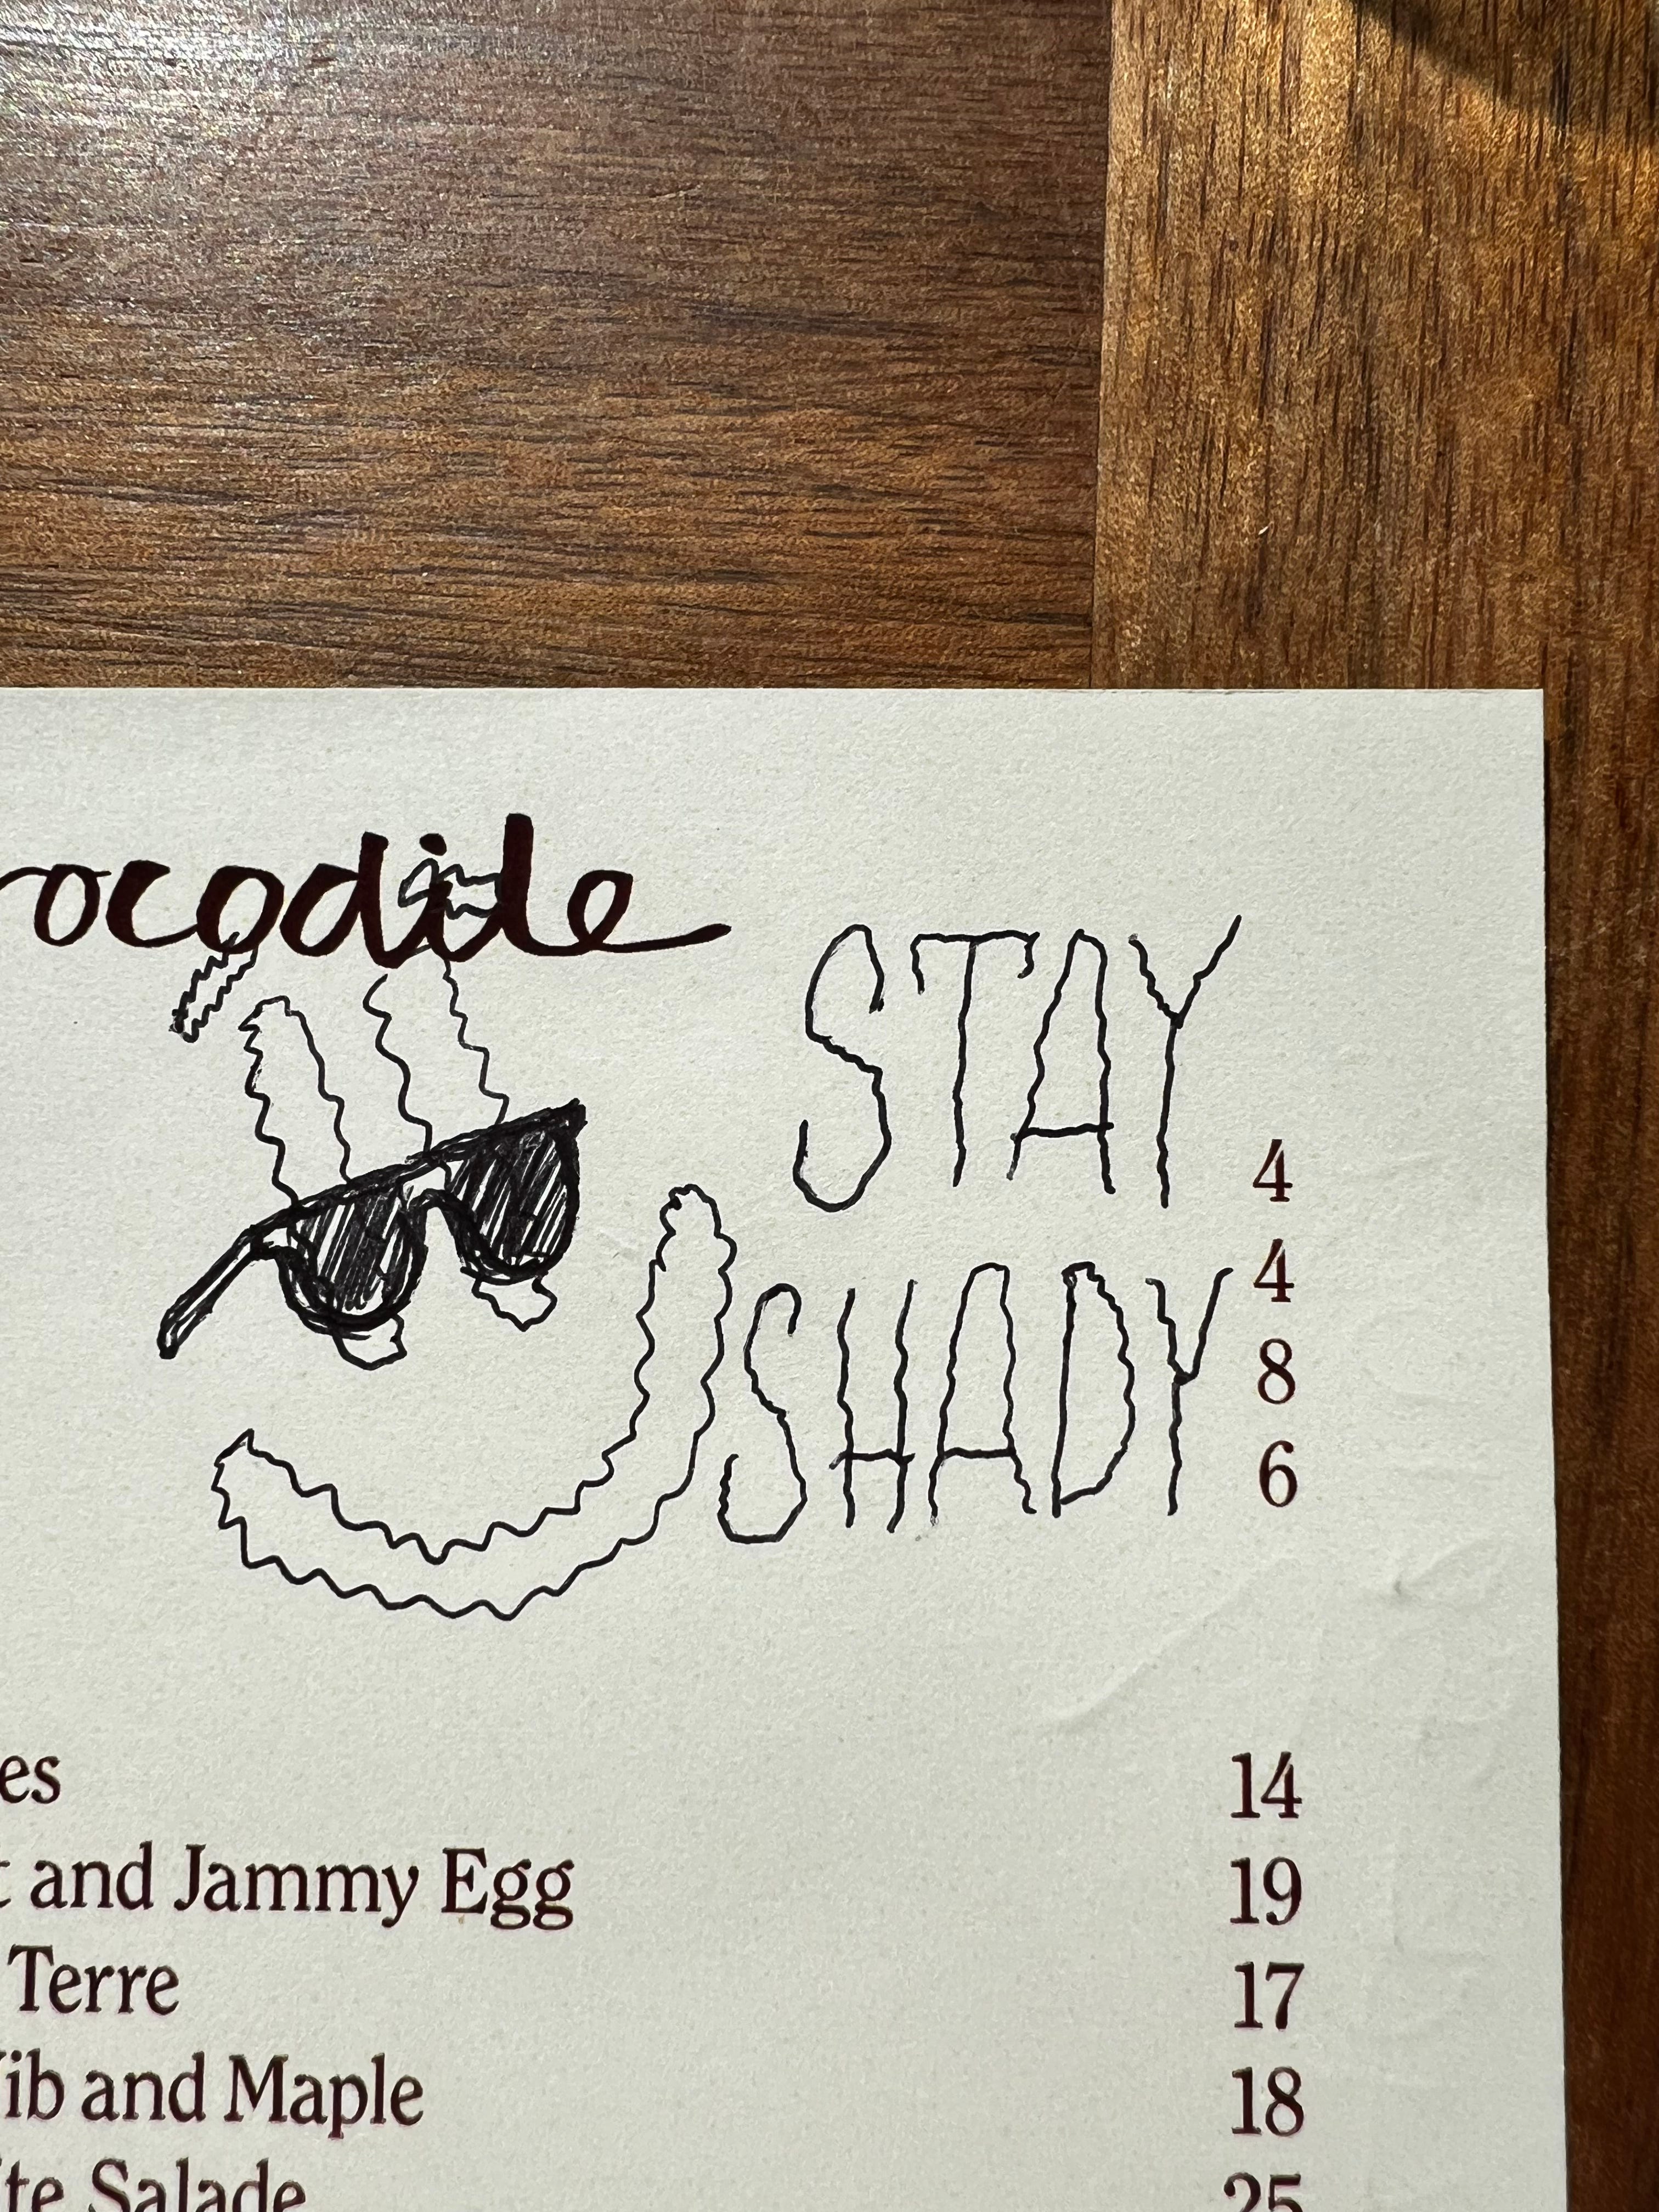 rocodile
STAY
SHADY
4
4
8
6
es 14
t and Jammy Egg 19
Terre 17
ib and Maple 18
te Salade 25